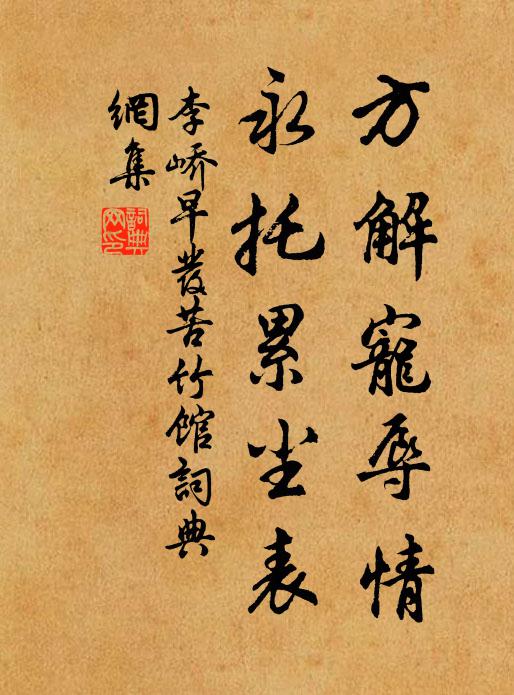 方解寵辱情
永托累尘表
李嶠早發苦竹館詞典
網集
詞典
网印